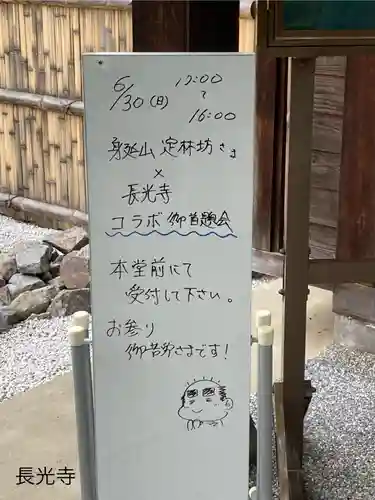 6/30(日) 12:00
〜
16:00
身延山 定林坊さま
×
長光寺
コラボ御首題会
本堂前にて
受付して下さい。
お参り
御苦労さまです!
長光寺